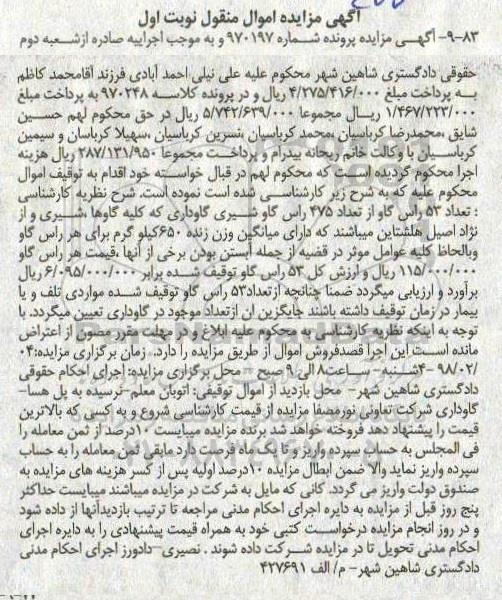 آگهی مزایده اموال منقول نوبت اول
۸۳-۹- آگهی مزایده پرونده شماره ۹۷۰۱۹۷ و به موجب اجراییه صادره از شعبه دوم
حقوقی دادگستری شاهین شهر محکوم علیه علی نیلی احمد آبادی فرزند آقامحمد کاظم
به پرداخت مبلغ ۴/۲۷۵/۴۱۶/۰۰۰ ریال و در پرونده کلاسه ۹۷۰۲۴۸ به پرداخت مبلغ
۱/۴۶۷/۲۲۳/۰۰۰ ریال مجموعا ۵/۷۴۲/۶۳۹/۰۰۰ ریال در حق محکوم لهم حسین
شایق ،محمدرضا کرباسیان ،محمد کرباسیان ،نسرین کرباسیان ،سهیلا کرباسان و سیمین
کرباسیان با وکالت خانم ریحانه بیدرام و پرداخت مجموعا ۲۸۷/۱۳۱/۹۵۰ ریال هزینه
اجرا محکوم گردیده است که محکوم لهم در قبال خواسته خود اقدام به توقیف اموال
محکوم علیه که به شرح زیر کارشناسی شده است نموده است. شرح نظریه کارشناسی
: تعداد ۵۳ راس گاو از تعداد ۴۷۵ راس گاو شیری گاوداری که کلیه گاوها ،شیری و از
نژاد اصیل هلشتاین میباشند که دارای میانگین وزن زنده ۶۵۰کیلو گرم برای هر راس گاو
وبالحاظ کلیه عوامل موثر در قضیه از جمله آبستن بودن برخی از آنها ،قیمت هر راس گاو
۱۱۵/۰۰۰/۰۰۰ ریال و ارزش کل ۵۳ راس گاو توقیف شده برابر ۶/۰۹۵/۰۰۰/۰۰۰ ریال
برآورد و ارزیابی میگردد ضمنا چنانچه ازتعداد۵۳ راس گاو توقیف شده مواردی تلف و یا
بیمار در زمان توقیف داشته باشند جایگزین ان ازتعداد موجود در گاوداری تعیین میگردد. با
توجه به اینکه نظریه کارشناسی به محکوم علیه ابلاغ و در مهلت مقرر مصون از اعتراض
مانده است این اجرا قصدفروش اموال از طریق مزایده را دارد. زمان برگزاری مزایده:۰۴
/۹۸/۰۲ -۴شنبه- ساعت۸ الی ۹ صبح - محل برگزاری مزایده: اجرای احکام حقوقی
دادگستری شاهین شهر- محل بازدید از اموال توقیفی: اتوبان معلم-نرسیده به پل هسا-
گاوداری شرکت تعاونی نورمصفا مزایده از قیمت کارشناسی شروع و به کسی که بالاترین
قیمت را پیشنهاد دهد فروخته خواهد شد برنده مزایده میبایست ۱۰درصد از ثمن معامله را
فی المجلس به حساب سپرده واریز و تا یک ماه فرصت دارد مابقی ثمن معامله را به حساب
سپرده واریز نماید والا ضمن ابطال مزایده ۱۰درصد اولیه پس از کسر هزینه های مزایده به
صندوق دولت واریز می گردد. کانی که مایل به شرکت در مزایده میباشند میبایست حداکثر
پنج روز قبل از مزایده به دایره اجرای احکام مدنی مراجعه تا ترتیب بازدیدآنها از داده شود
و در روز انجام مزایده درخواست کتبی خود به همراه قیمت پیشنهادی را به دایره اجرای
احکام مدنی تحویل تا در مزایده شرکت داده شوند . نصیری-دادورز اجرای احکام مدنی
دادگستری شاهین شهر- م/ الف ۴۲۷۶۹۱